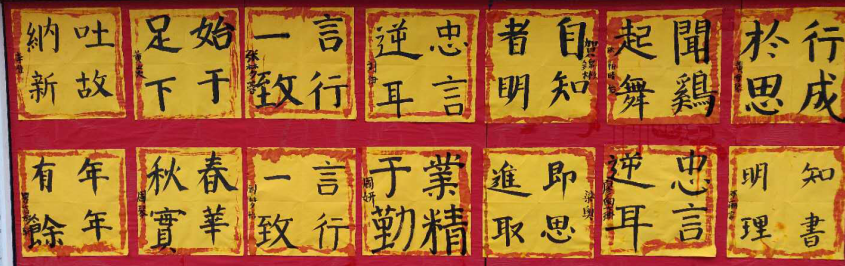 行成
於思
聞鷄
起舞
自知
者明
忠言
逆耳
言行
一致
始于
足下
吐故
納新
知書
明理
忠言
逆耳
即思
進取
業精
于勤
周妍
言行
一致
春華
秋實
年年
有餘